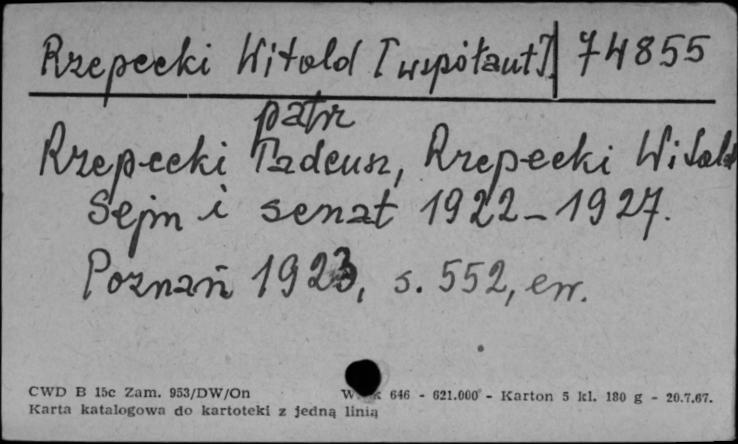 Rzepecki Witold [współaut]. 74855
patrz
Rzepecki Tadeusz, Rzepecki Witold
Sejm i senat 1922-1927.
Poznań 1923, s. 552, err.
CWD B 15c Zam. 953/DW/On 646 - 621.000 - Karton 5 kl. 180 g - 20.7.67.
Karta katalogowa do kartoteki z jedną linią